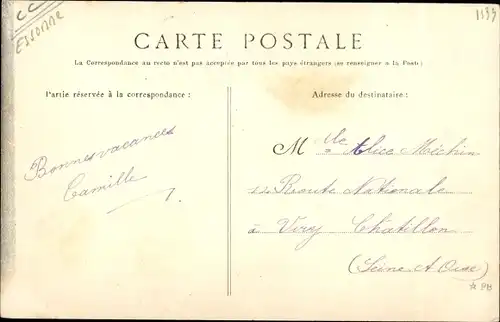 CC
ESSONNE
1133
CARTE POSTALE
La Correspondance au recto n'est pas acceptée par tous les pays étrangers (se renseigner à la Poste)
Partie réservée à la correspondance :
Adresse du destinataire :
Bonnes vacances
Camille
Mlle Alice Méchin
Route Nationale
à Viry Chatillon
(Seine et Oise)